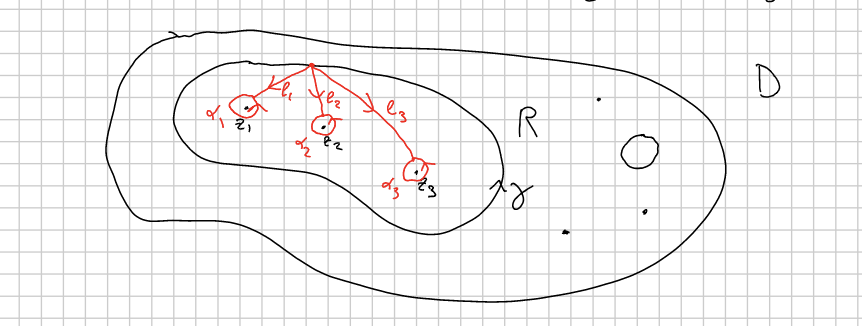 D
R
l₁
l₂
l₃
α₁
z₁
α₂
z₂
α₃
z₃
γ